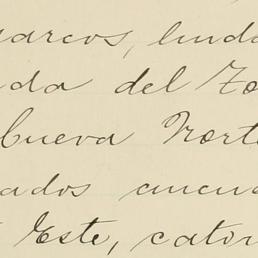 marcos, linda
da del To
Cueva Norte
ados cincu
Este, cator